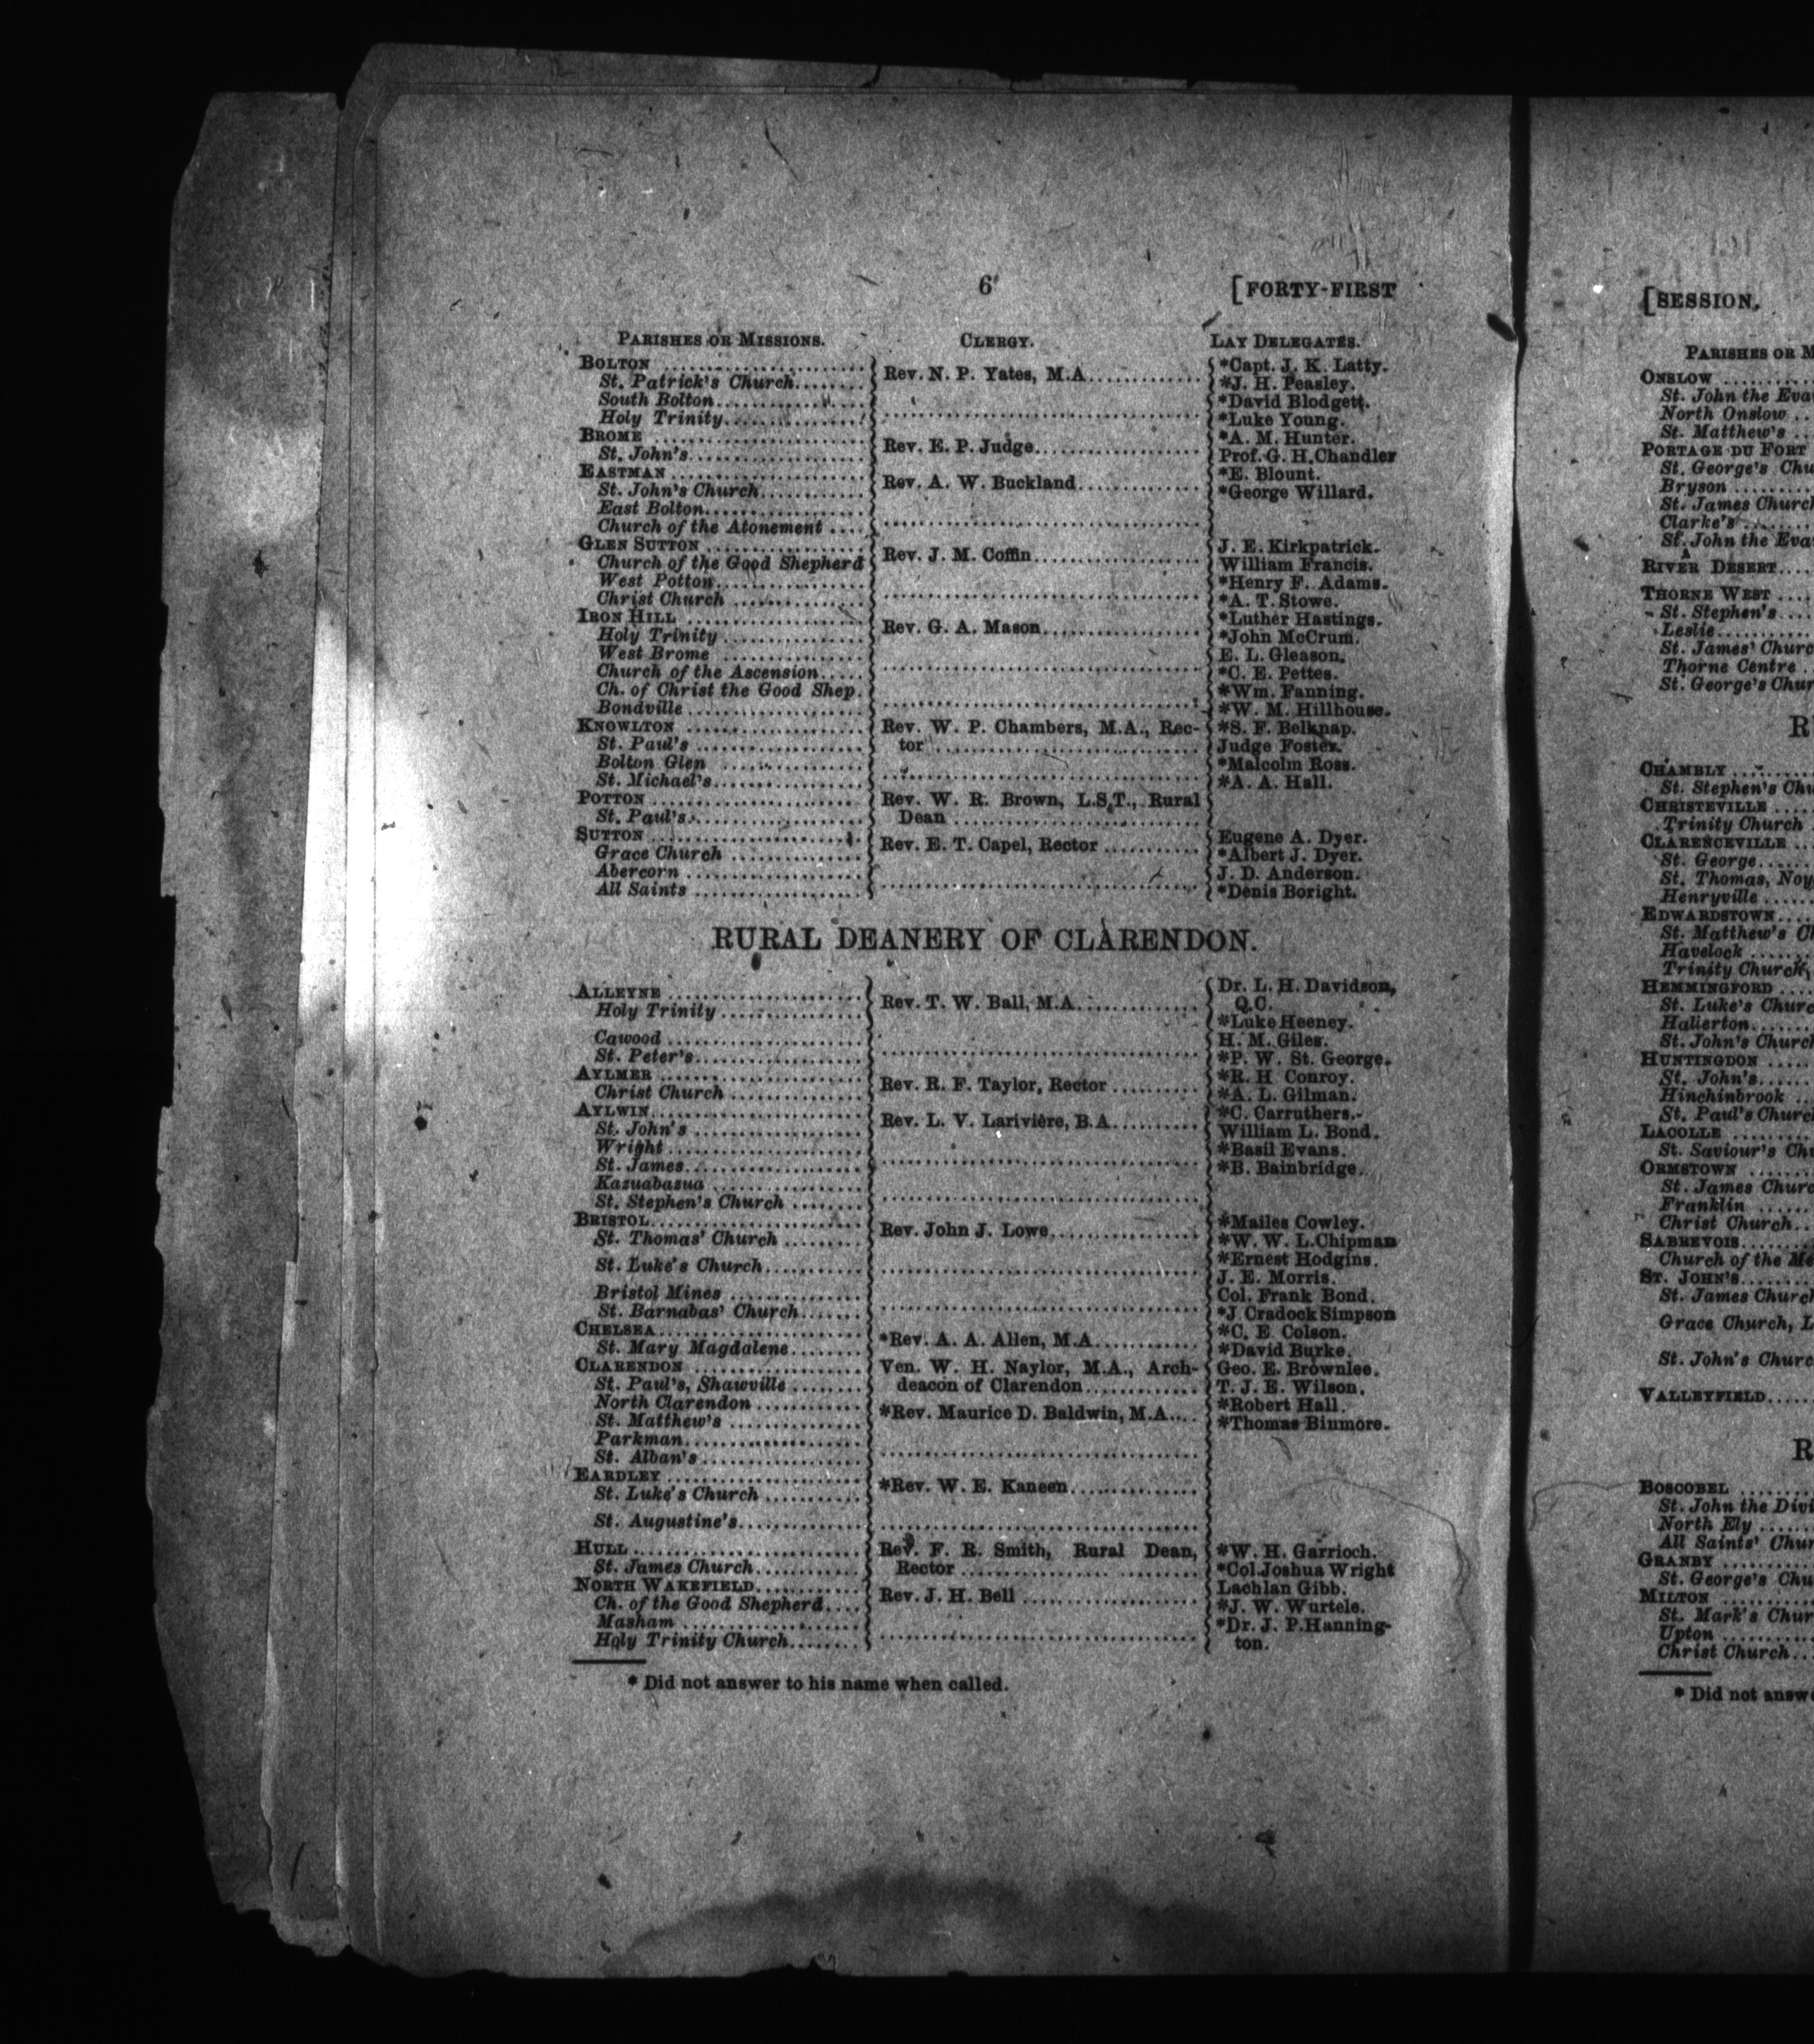 6 [FORTY-FIRST
PARISHES OR MISSIONS. CLERGY. LAY DELEGATES.
BOLTON *Capt. J. K. Latty.
St. Patrick's Church Rev. N. P. Yates, M.A. *J. H. Peasley.
South Bolton *David Blodgett.
Holy Trinity *Luke Young.
BROME *A. M. Hunter.
St. John's Rev. E. P. Judge Prof. G. H. Chandler
EASTMAN *E. Blount.
St. John's Church Rev. A. W. Buckland *George Willard.
East Bolton
Church of the Atonement
GLEN SUTTON J. E. Kirkpatrick.
Church of the Good Shepherd Rev. J. M. Coffin William Francis.
West Potton *Henry F. Adams.
Christ Church *A. T. Stowe.
IRON HILL *Luther Hastings.
Holy Trinity Rev. G. A. Mason *John McCrum.
West Brome E. L. Gleason.
Church of the Ascension *C. E. Pettes.
Ch. of Christ the Good Shep. *Wm. Fanning.
Bondville *W. M. Hillhouse.
KNOWLTON Rev. W. P. Chambers, M.A., Rec- *S. F. Belknap.
St. Paul's tor Judge Foster.
Bolton Glen *Malcolm Ross.
St. Michael's *A. A. Hall.
POTTON Rev. W. R. Brown, L.S.T., Rural
St. Paul's Dean
SUTTON Eugene A. Dyer.
Grace Church Rev. E. T. Capel, Rector *Albert J. Dyer.
Abercorn J. D. Anderson.
All Saints *Denis Boright.
RURAL DEANERY OF CLARENDON.
ALLEYNE Dr. L. H. Davidson,
Holy Trinity Rev. T. W. Ball, M.A. Q.C.
*Luke Heeney.
Cawood H. M. Giles.
St. Peter's *P. W. St. George.
AYLMER *R. H Conroy.
Christ Church Rev. R. F. Taylor, Rector *A. L. Gilman.
AYLWIN *C. Carruthers.
St. John's Rev. L. V. Larivière, B.A. William L. Bond.
Wright *Basil Evans.
St. James *B. Bainbridge.
Kazuabazua
St. Stephen's Church
BRISTOL *Mailes Cowley.
St. Thomas' Church Rev. John J. Lowe *W. W. L. Chipman
St. Luke's Church *Ernest Hodgins.
J. E. Morris.
Bristol Mines Col. Frank Bond.
St. Barnabas' Church *J Cradock Simpson
CHELSEA *C. E. Colson.
St. Mary Magdalene *Rev. A. A. Allen, M.A. *David Burke.
CLARENDON Ven. W. H. Naylor, M.A., Arch- Geo. E. Brownlee.
St. Paul's, Shawville deacon of Clarendon T. J. E. Wilson.
North Clarendon *Robert Hall.
St. Matthew's *Rev. Maurice D. Baldwin, M.A. *Thomas Binmore.
Parkman
St. Alban's
EARDLEY
St. Luke's Church *Rev. W. E. Kaneen
St. Augustine's
HULL Rev. F. R. Smith, Rural Dean, *W. H. Garrioch.
St. James Church Rector *Col. Joshua Wright
NORTH WAKEFIELD Lachlan Gibb.
Ch. of the Good Shepherd Rev. J. H. Bell *J. W. Wurtele.
Masham *Dr. J. P. Hanning-
Holy Trinity Church ton.
* Did not answer to his name when called.
[SESSION.
PARISHES OR M
ONSLOW
St. John the Eva
North Onslow
St. Matthew's
PORTAGE DU FORT
St. George's Chu
Bryson
St. James Church
Clarke's
St. John the Eva
RIVER DESERT
THORNE WEST
St. Stephen's
Leslie
St. James' Churc
Thorne Centre
St. George's Chur
R
CHAMBLY
St. Stephen's Chu
CHRISTEVILLE
Trinity Church
CLARENCEVILLE
St. George
St. Thomas, Noy
Henryville
EDWARDSTOWN
St. Matthew's C
Havelock
Trinity Church,
HEMMINGFORD
St. Luke's Churc
Hallerton
St. John's Church
HUNTINGDON
St. John's
Hinchinbrook
St. Paul's Church
LACOLLE
St. Saviour's Chu
ORMSTOWN
St. James Churc
Franklin
Christ Church
SABREVOIS
Church of the Me
ST. JOHN'S
St. James Church
Grace Church, L
St. John's Churc
VALLEYFIELD
R
BOSCOBEL
St. John the Divi
North Ely
All Saints' Chur
GRANBY
St. George's Chu
MILTON
St. Mark's Chur
Upton
Christ Church
* Did not answe